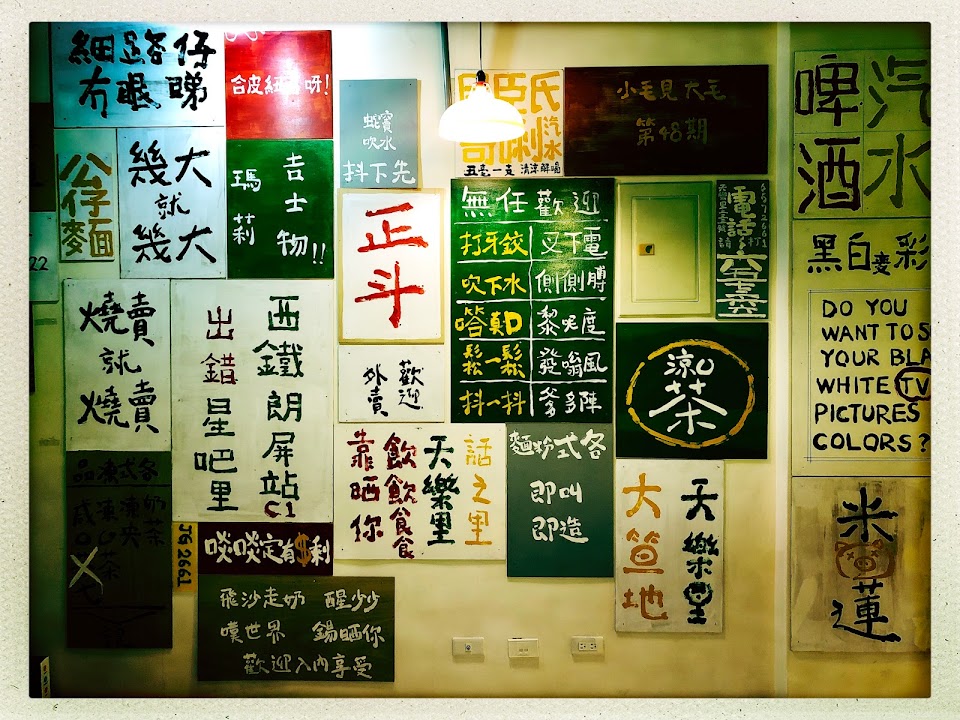 細路仔
冇眼睇
公仔麵
幾大
就
幾大
吉士
瑪莉
物!!
吹水
抖下先
正斗
外賣
歡迎
汽水
五毫一支
小毛見大毛
第48期
無任歡迎
打牙鉸
叉下電
吹下水
側側膊
黎呢度
鬆一鬆
發嗡風
抖一抖
爹多陣
電話
涼
茶
啤酒
汽水
黑白
彩
DO YOU
WANT TO S
YOUR BLA
WHITE TV
PICTURES
COLORS?
燒賣
就
燒賣
西鐵朗屏站C1
出錯星吧里
話之里
天樂里
飲飲食食
靠晒你
各式粉麵
即叫
即造
天樂里
大笪地
米
蓮
各式凍品
奶茶
J6 2661
啖啖定有$剩
飛沙走奶 醒少少
嘆世界 錫晒你
歡迎入內享受
22